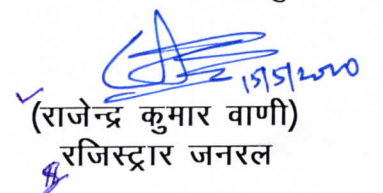 15/5/2020
(राजेन्द्र कुमार वाणी)
रजिस्ट्रार जनरल